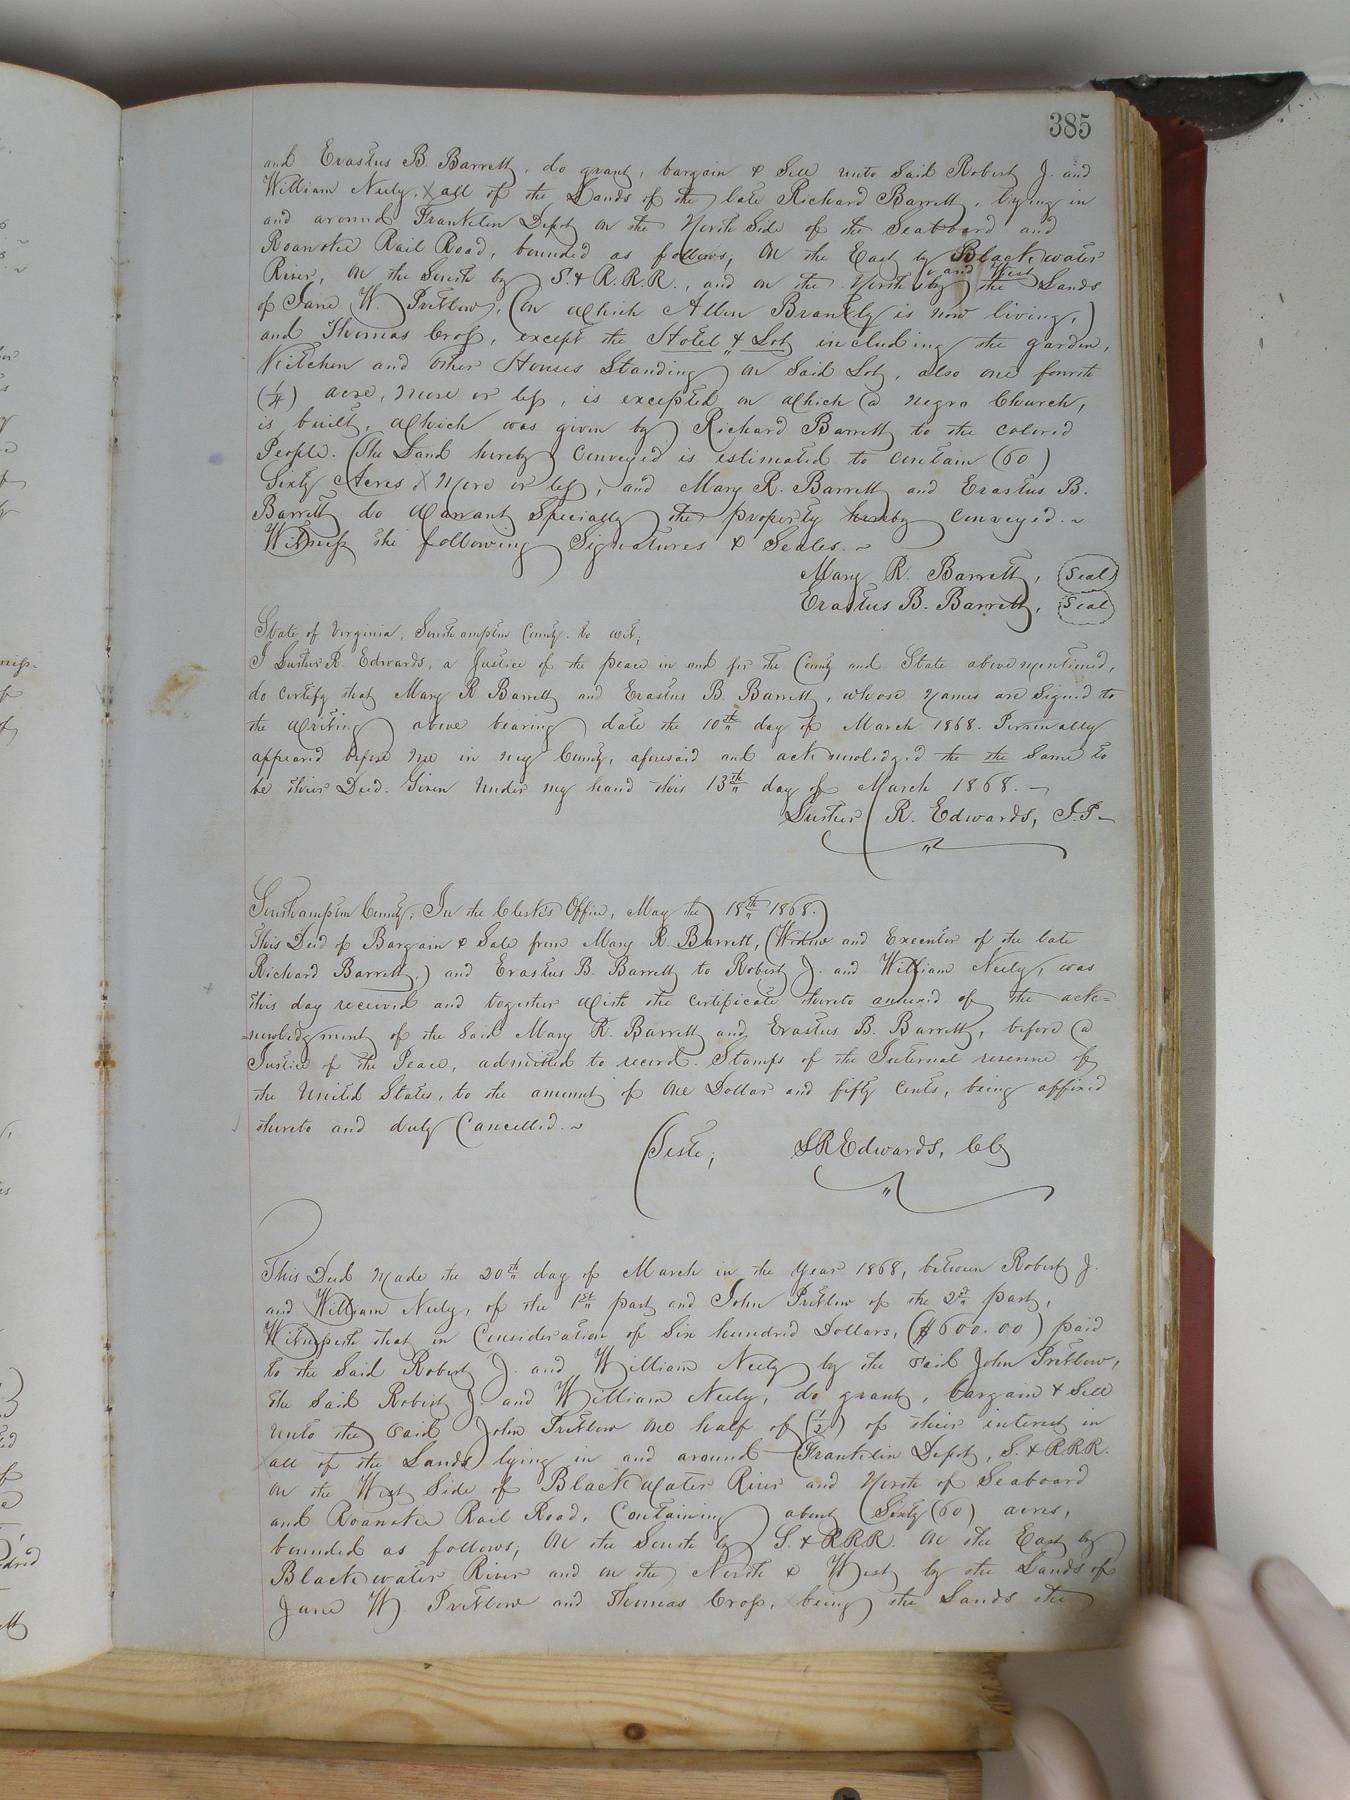 385
and Erastus B. Barrett, do grant, bargain & Sell unto Said Robert J. and
William Neely, X all of the Lands of the late Richard Barrett, lying in
and around Franklin Depot on the North Side of the Seaboard and
Roanoke Rail Road, bounded as follows, On the East by Blackwater
River, On the South by S. & R. R. R., and on the North by and West the Lands
of Jane W. Pretlow, (on which Allen Brantly is now living,)
and Thomas Cross, except the Hotel & Lot, including the garden,
Kitchen and other Houses Standing on Said Lot, also one fourth
(1/4) acre, more or less, is excepted on which a negro Church,
is built, which was given by Richard Barrett to the colored
People. The Land hereby Conveyed is estimated to contain (60)
Sixty Acres X More or less, and Mary R. Barrett and Erastus B.
Barrett do Warrant Specially the property hereby conveyed. ~
Witness the following Signatures & Seales. ~
Mary R. Barrett, (Seal)
Erastus B. Barrett, (Seal)
State of Virginia, Southampton County. to wit,
I R. Edwards, a Justice of the peace in and for the County and State above mentioned,
do certify that Mary R Barrett and Erastus B. Barrett, whose names are Signed to
the writing above bearing date the 10th day of March 1868. Personally
appeared before me in my County, aforesaid and acknowledged the the Same to
be their Deed. Given Under my hand this 13th day of March 1868. ~
R. Edwards, J.P.
Southampton County, In the Clerk's Office, May the 18th 1868.
This Deed of Bargain & Sale from Mary R. Barrett, (Widow and Executor of the late
Richard Barrett,) and Erastus B. Barrett to Robert J. and William Neely, was
this day received and together with the certificate thereto annexed of the ack=
=nowledgment of the Said Mary R. Barrett and Erastus B. Barrett, before a
Justice of the Peace, admitted to record. Stamps of the Internal revenue of
the United States, to the amount of One Dollar and fifty cents, being affixed
thereto and duly Cancelled. ~
Teste; L R Edwards, CC
This Deed Made the 20th day of March in the Year 1868, between Robert J.
and William Neely, of the 1st part and John Pretlow of the 2d part,
Witnesseth that in Consideration of Six hundred Dollars, ($600.00) paid
to the Said Robert J. and William Neely by the said John Pretlow,
the Said Robert J. and William Neely, do grant, bargain & Sell
unto the said John Pretlow one half of (1/2) of their interest in
all of the Lands lying in and around Franklin Depot, S. & R.R.R.
on the West Side of Black Water River and North of Seaboard
and Roanoke Rail Road, Containing about Sixty (60) acres,
bounded as follows; On the South by S. & R.R.R. On the East by
Blackwater River and on the North & West by the Lands of
Jane W. Pretlow and Thomas Cross, being the Lands the